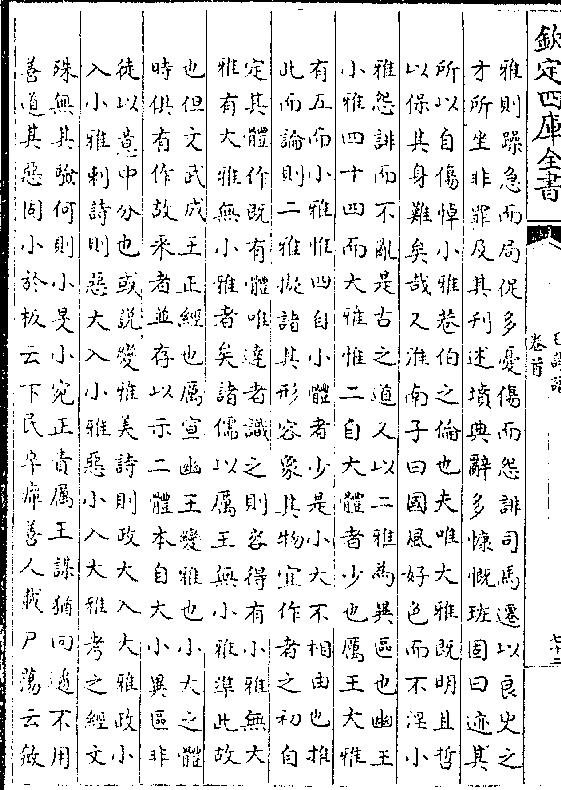 欽定四庫全書
卷首
雅則躁急而局促多憂傷而怨誹司馬遷以良史之
才所坐非罪及其刊述墳典辭多慷慨班固曰迹其
所以自傷悼小雅巷伯之倫也夫唯大雅既明且哲
以保其身難矣哉又淮南子曰國風好色而不淫小
雅怨誹而不亂是古之道又以二雅為異區也幽王
小雅四十四而大雅惟二自大體者少也厲王大雅
有五而小雅惟四自小體者少是小大不相由也推
此而論則二雅擬諸其形容象其物宜作者之初自
定其體作既有體唯達者識之則容得有小雅無大
雅有大雅無小雅者矣諸儒以厲王無小雅準此故
也但文武成王正經也厲宣幽王變雅也小大之體
時俱有作故采者並存以示二體本自大小異區非
徒以意中分也或說變雅美詩則政大入大雅政小
入小雅刺詩則惡大入小雅惡小入大雅考之經文
殊無其驗何則小旻小宛正責厲王謀猶回遹不用
善道其惡固小於板云下民卒癉善人載尸蕩云斂